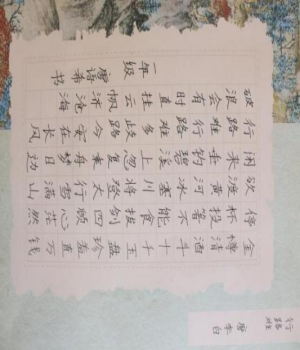 行路难
唐 李白
金樽清酒斗十千玉盘珍羞直万钱
停杯投箸不能食拔剑四顾心茫然
欲渡黄河冰塞川将登太行雪满山
闲来垂钓碧溪上忽复乘舟梦日边
行路难行路难多歧路今安在长风
破浪会有时直挂云帆济沧海
一年级 唐语希书